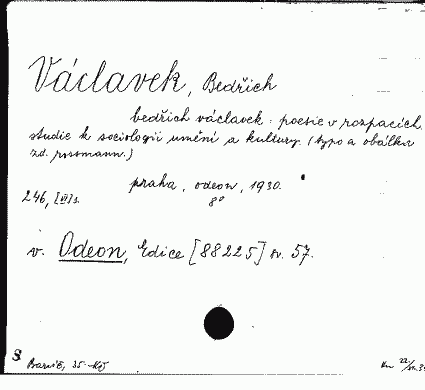 Václavek, Bedřich
bedřich václavek: poesie v rozpacích.
studie k sociologii umění a kultury. (typo a obálka
zd. rossmann.)
praha, odeon, 1930.
246, [III] s. 8°
v. Odeon, Edice [88225] sv. 57.
35